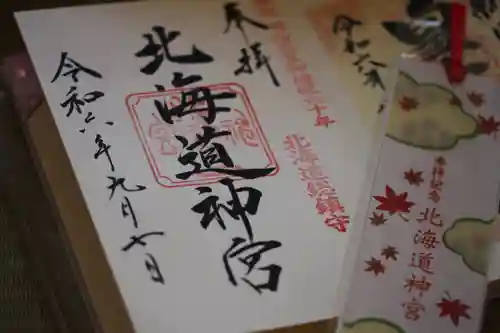 奉拝
北海道神宮
令和六年九月七日
北海道総鎮守
令和六
参拝記念
北海道神宮